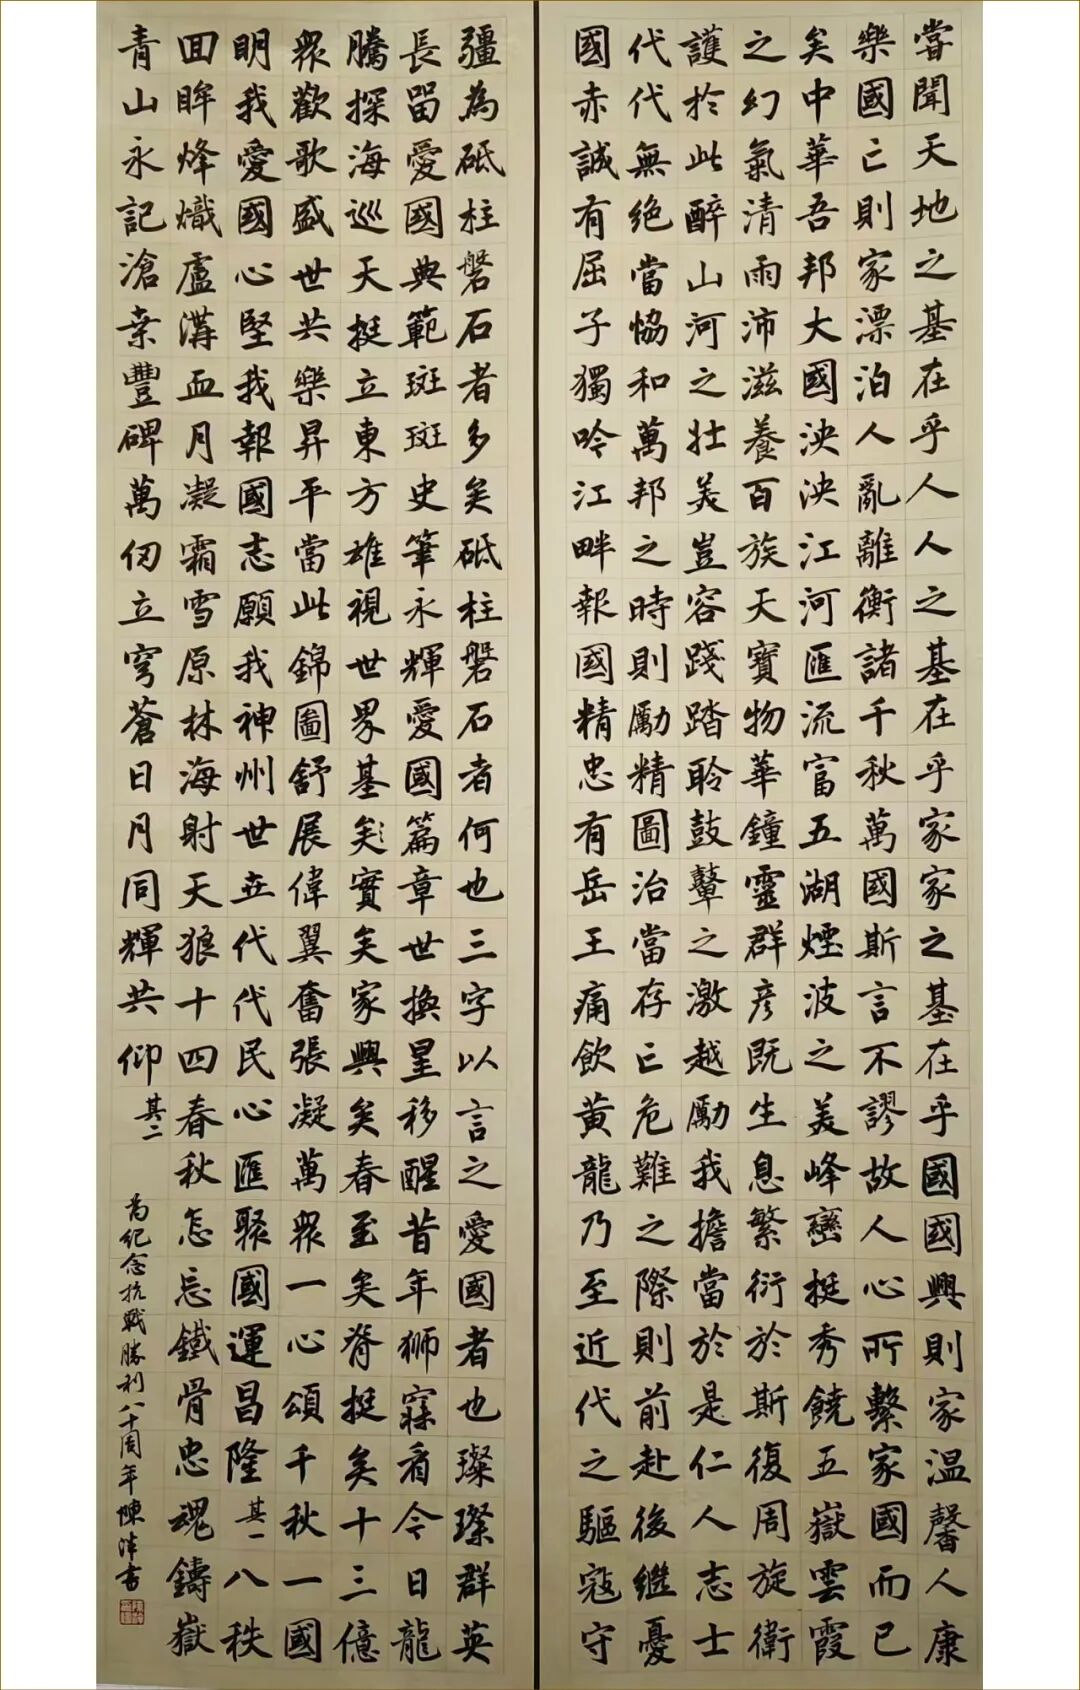 嘗聞天地之基在乎人人之基在乎家家之基在乎國國興則家温馨人康
樂國亡則家漂泊人亂離衡諸千秋萬國斯言不謬故人心所繫家國而已
矣中華吾邦大國泱泱江河匯流富五湖煙波之美峰巒挺秀饒五嶽雲霞
之幻氣清雨沛滋養百族天寶物華鐘靈群彦既生息繁衍於斯復周旋衛
護於此醉山河之壯美豈容踐踏聆鼓鼙之激越勵我擔當於是仁人志士
代代無绝當恊和萬邦之時則勵精圖治當存亡危難之際則前赴後继憂
國赤誠有屈子獨吟江畔報國精忠有岳王痛飲黄龍乃至近代之驅寇守
疆為砥柱磐石者多矣砥柱磐石者何也三字以言之愛國者也璨璨群英
長留愛國典範斑斑史筆永輝愛國篇章世換星移醒昔年狮寐看今日龍
騰探海巡天挺立東方雄視世界基矣實矣家興矣春至矣脊挺矣十三億
衆歡歌盛世共樂昇平當此錦圖舒展偉翼奮張凝萬衆一心頌千秋一國
明我愛國心堅我報國志願我神州世世代代民心匯聚國運昌隆其一八秩
回眸烽熾盧溝血月凝霜雪原林海射天狼十四春秋怎忘鐵骨忠魂鑄嶽
青山永記滄桒豐碑萬仞立穹蒼日月同輝共仰其二
为纪念抗戰勝利八十周年陳津书